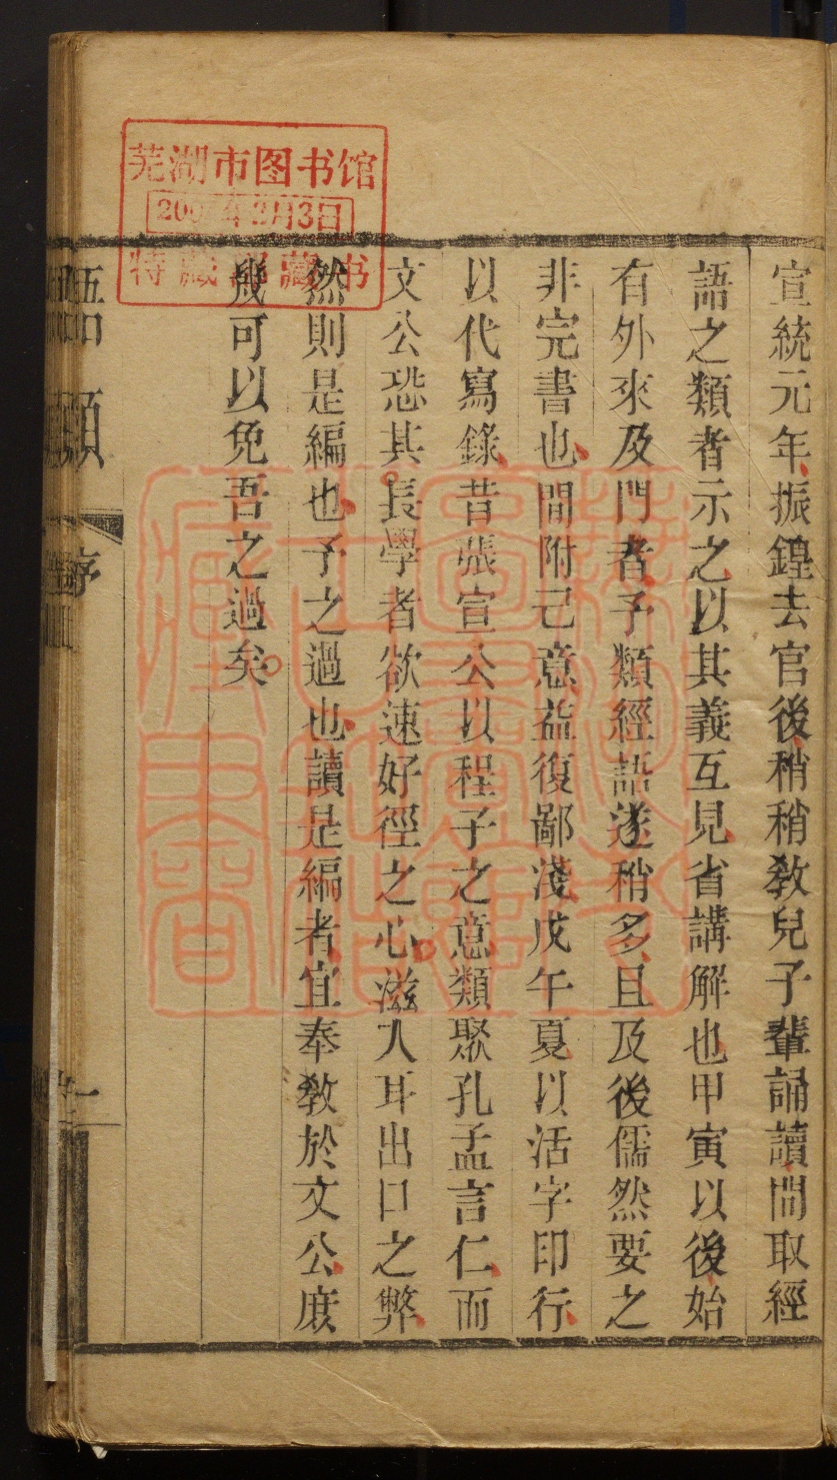 宣統元年振鍠去官後稍稍敎兒子輩誦讀間取經
語之類者示之以其義互見省講解也甲寅以後始
有外來及門者予類經語遂稍多且及後儒然要之
非完書也間附己意益復鄙淺戊午夏以活字印行
以代寫錄昔張宣公以程子之意類聚孔孟言仁而
文公恐其長學者欲速好徑之心滋入耳出口之弊
然則是編也予之過也讀是編者宜奉敎於文公庶
幾可以免吾之過矣
語類
序
一
芜湖市图书馆
年2月3日
特藏部藏书